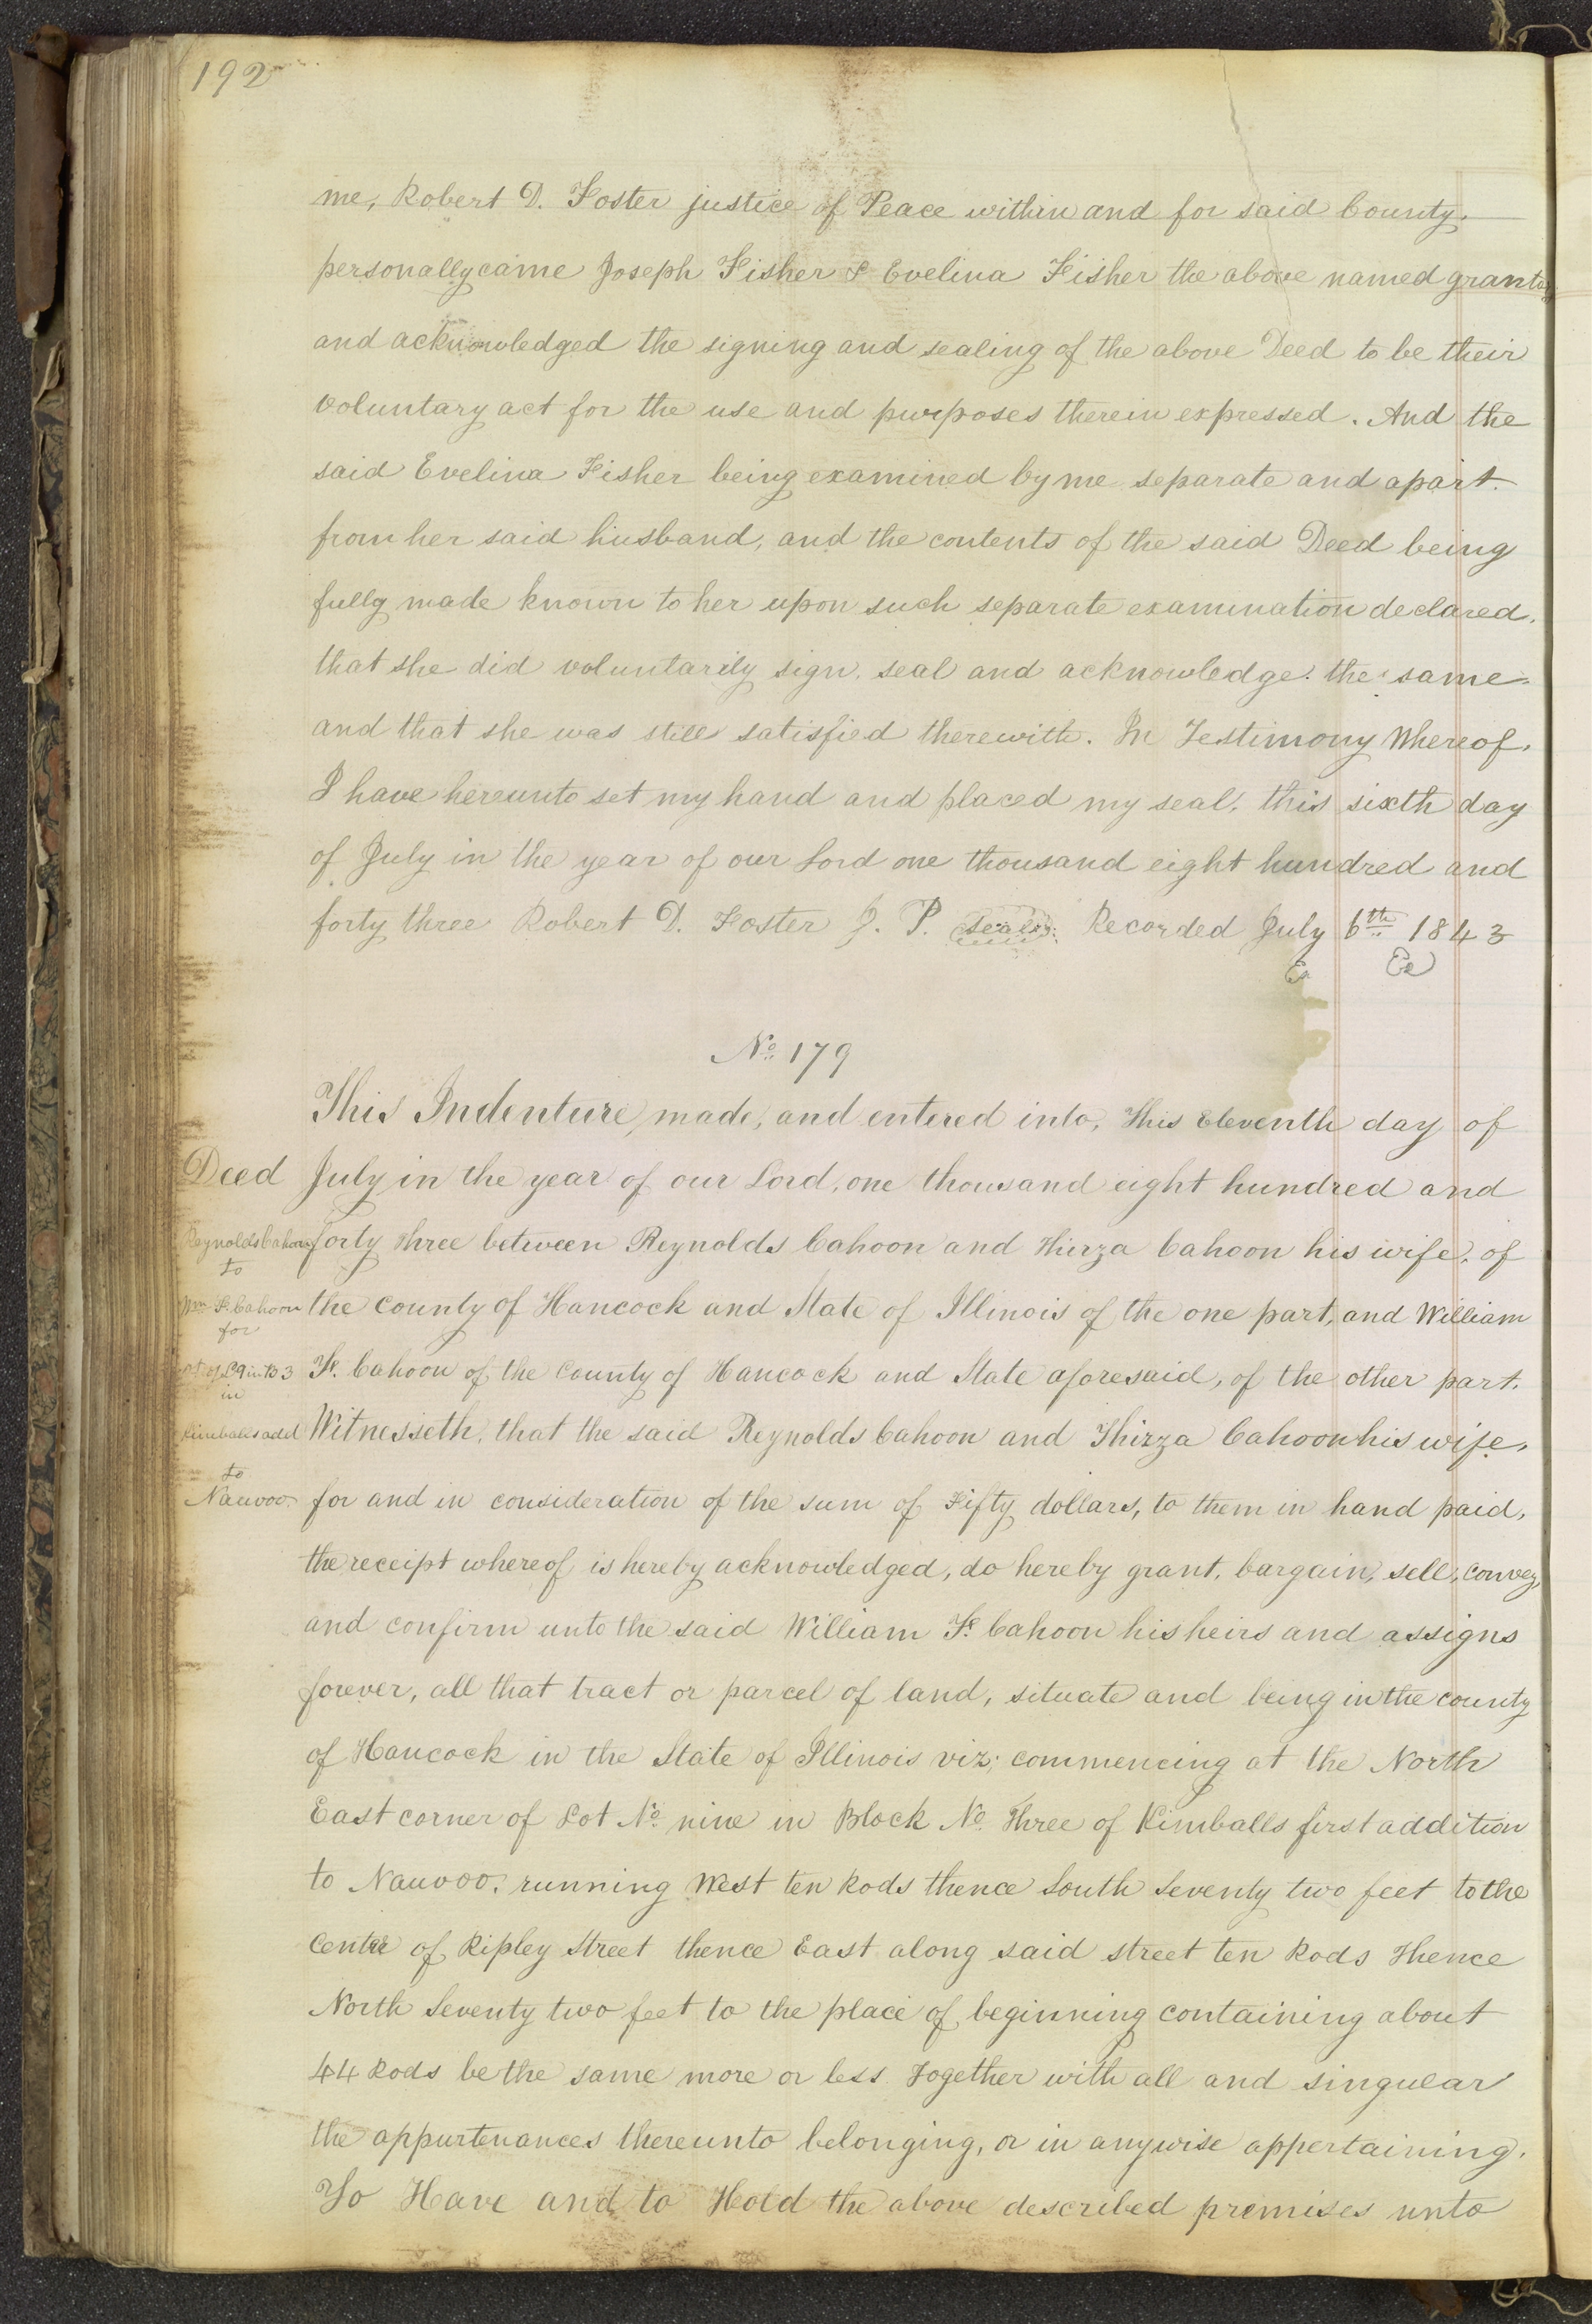 192
me, Robert D. Foster justice of Peace within and for said County.
personally came Joseph Fisher & Evelina Fisher the above named grantors
and acknowledged the signing and sealing of the above Deed to be their
voluntary act for the use and purposes therein expressed. And the
said Evelina Fisher being examined by me separate and apart.
from her said husband, and the contents of the said Deed being
fully made known to her upon such separate examination declared.
that she did voluntarily sign, seal and acknowledge. the same.
and that she was still satisfied therewith. In Testimony Whereof.
I have hereunto set my hand and placed my seal, this sixth day
of July in the year of our Lord one thousand eight hundred and
forty three Robert D. Foster J. P. seal Recorded July 6th 1843
No. 179
This Indenture, made, and entered into, This Eleventh day of
Deed
July in the year of our Lord, one thousand eight hundred and
Reynolds Cahoon
forty three between Reynolds Cahoon and Thirza Cahoon his wife, of
to
Wm F. Cahoon
the county of Hancock and State of Illinois of the one part, and William
for
pt of L 9 in B 3
F. Cahoon of the County of Hancock and State aforesaid, of the other part.
in
Kimballs add
Witnesseth, that the said Reynolds Cahoon and Thirza Cahoon his wife,
to
Nauvoo.
for and in consideration of the sum of Fifty dollars, to them in hand paid,
the receipt whereof, is hereby acknowledged, do hereby grant, bargain, sell, convey,
and confirm unto the said William F. Cahoon his heirs and assigns
forever, all that tract or parcel of land, situate and being in the county
of Hancock in the State of Illinois viz; commencing at the North
East corner of Lot No. nine in Block No. Three of Kimballs first addition
to Nauvoo, running West ten Rods thence South Seventy two feet to the
Centre of Ripley Street thence East along said street ten Rods Thence
North Seventy two feet to the place of beginning containing about
44 Rods be the same more or less Together with all and singular
the appurtenances thereunto belonging, or in anywise appertaining.
To Have and to Hold the above described premises unto